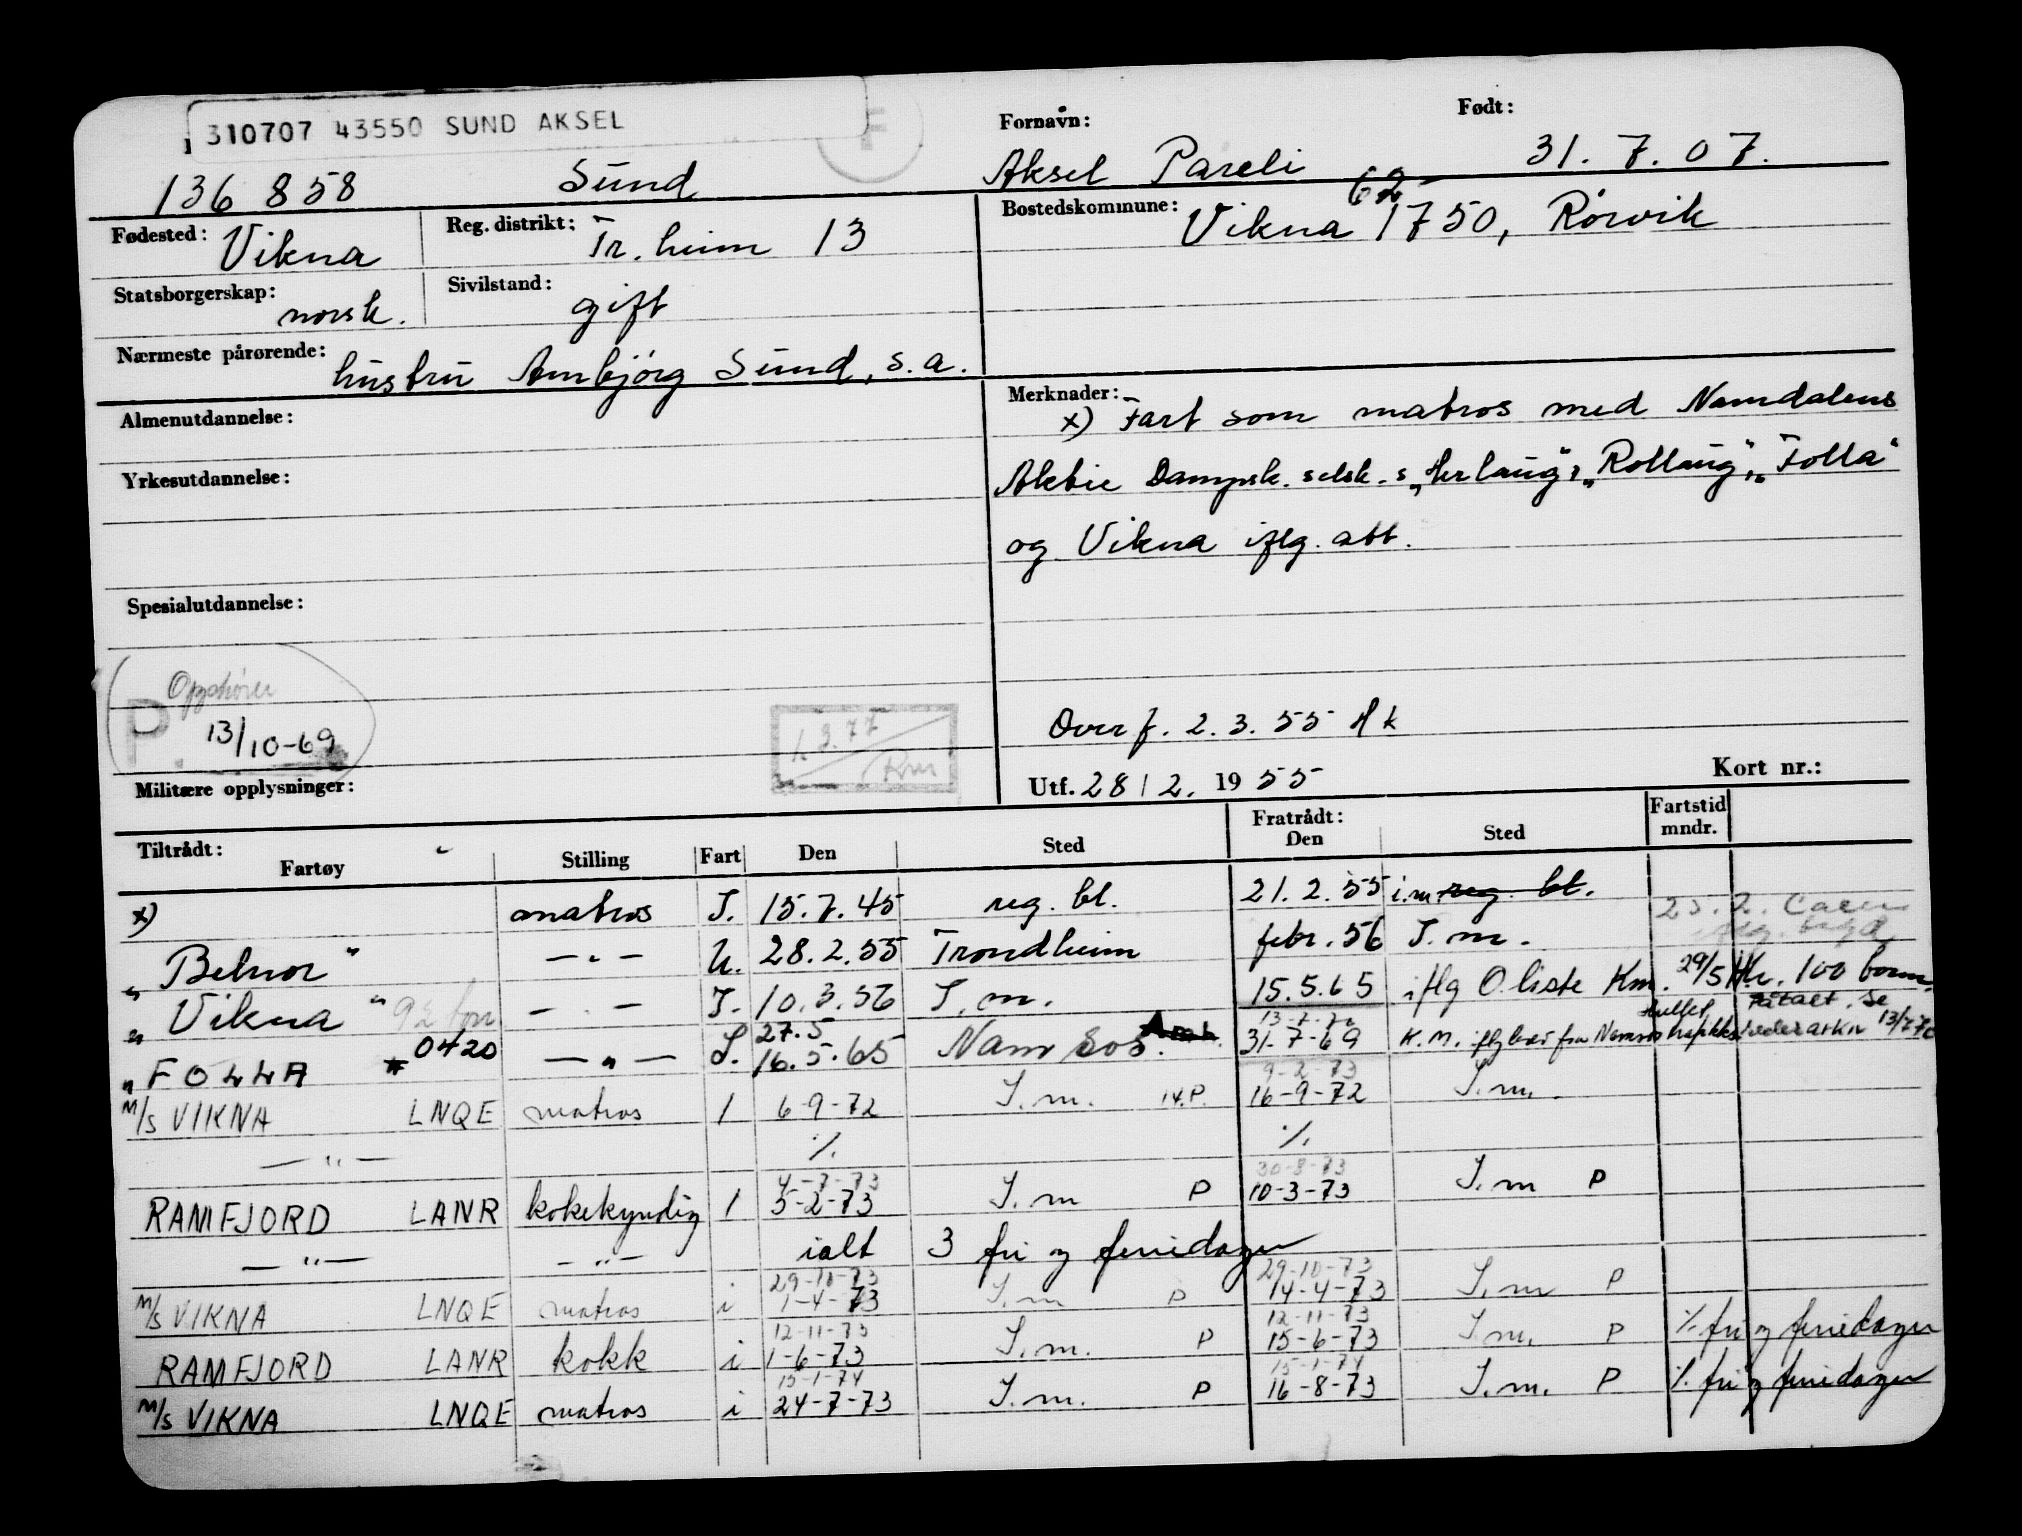 310707 43550 SUND AKSEL
F
Fornavn:
Født:
136 858 Sund Aksel Pareli 31. 7. 07.
Fødested: Vikna
Reg. distrikt: Tr.heim 13
Bostedskommune: Vikna 1750, Rörvik
62
Statsborgerskap: norsk.
Sivilstand: gift
Nærmeste pårørende: hustru Annbjörg Sund, s.a.
Almenutdannelse:
Merknader:
x) Fart som matros med Namdalens
Yrkesutdannelse:
Aktie Dampsk. selsk. s „Herlaug", „Rollaug", „Folla"
og Vikna iflg. att.
Spesialutdannelse:
Opphører
P. 13/10-69
Overf. 2. 3. 55 Hk
Militære opplysninger:
Utf. 28/2. 1955
Kort nr.:
Tiltrådt:
Fartøy Stilling Fart Den Sted
Fratrådt:
Den Sted
Fartstid
mndr.
x) matros I. 15.7.45 reg. bl. 21.2.55 i.m. reg. bl.
„Belnor" —„— U. 28.2.55 Trondheim febr. 56 I.m.
„Vikna" 92 tonn — - — I. 10.3.56 I.m. 15.5.65 iflg O.liste Km. 29/5 Hk. 100 born.
27.5
13-7-70
„FOLLA * 0420 —„— I. 16.5.65 Namsos. 31-7-69 K.M. iflg
9-2-73
M/S VIKNA LNQE matros 1 6-9-72 I.m. 14.P. 16-9-72 I.m.
—„— % %
4-7-73 30-8-73
RAMFJORD LANR kokekyndig 1 5-2-73 I.m P 10-3-73 I.m P
—„— —„— ialt 3 fri og feriedager
29-10-73 29-10-73
M/S VIKNA LNQE matros i 1-4-73 I.m P 14-4-73 I.m P
12-11-73 12-11-73
RAMFJORD LANR kokk i 1-6-73 I.m. P 15-6-73 I.m. P % fri og feriedager
15-1-74 15-1-74
M/S VIKNA LNQE matros i 24-7-73 I.m. P 16-8-73 I.m. P % fri og feriedager